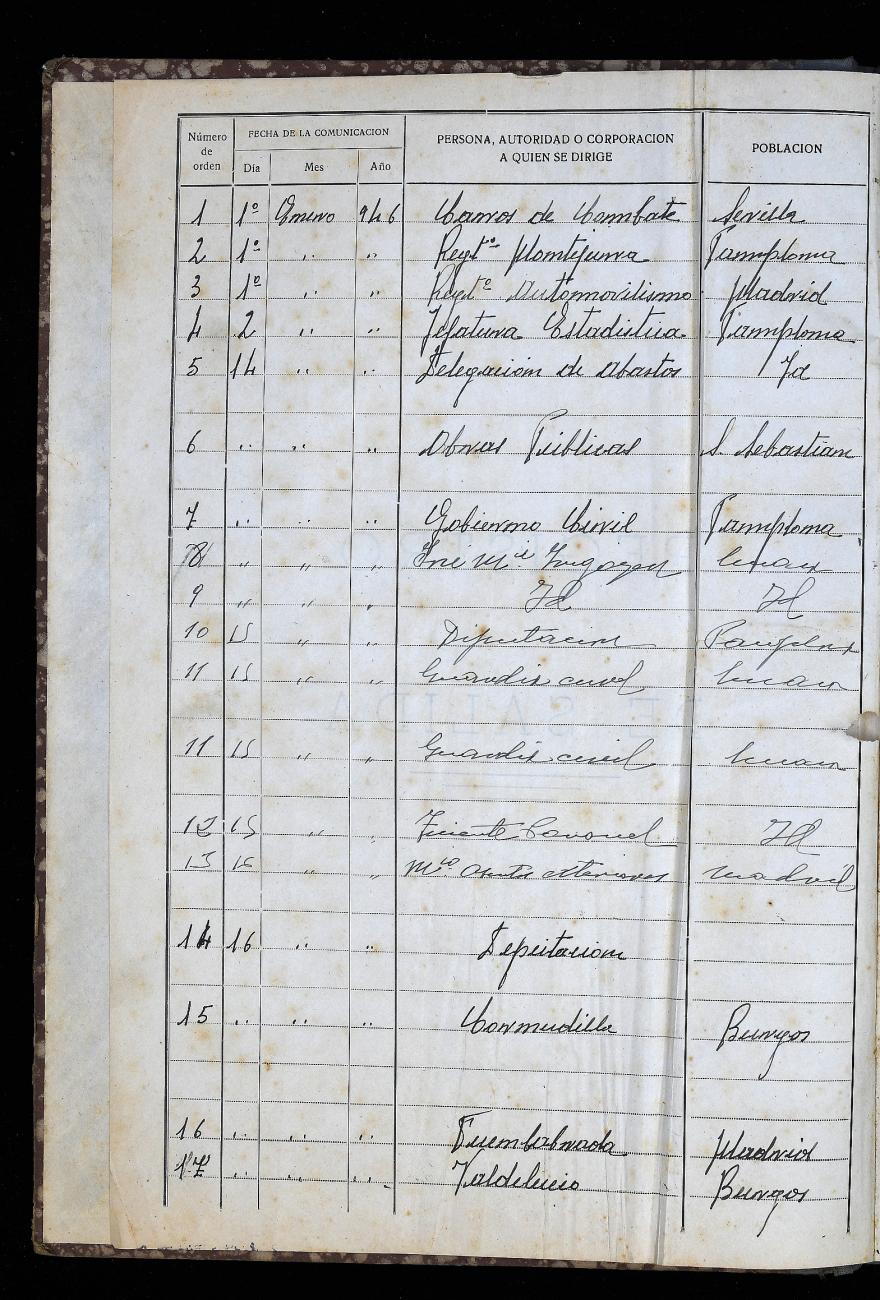 Número de orden FECHA DE LA COMUNICACION PERSONA, AUTORIDAD O CORPORACION A QUIEN SE DIRIGE POBLACION
Día Mes Año
1 1º Enero 946 Carros de Combate Sevilla
2 1º " " Regtº Montejurra Pamplona
3 1º " " Regtº Automovilismo Madrid
4 2 " " Jefatura Estadistica Pamplona
5 14 " " Delegación de Abastos Id
6 " " " Obras Públicas S. Sebastian
7 " " " Gobierno Civil Pamplona
8 " " " José Mª
9 " " " Id Id
10 15 " " Diputacion Pamplona
11 15 " " Guardia civil
11 15 " " Guardia civil
12 15 " " Teniente Coronel Id
13 16 " " Mtº Asuntos Exteriores Madrid
14 16 " " Diputacion
15 " " " Cornudilla Burgos
16 " " " Fuenlabrada Madrid
17 " " " Valdelucio Burgos